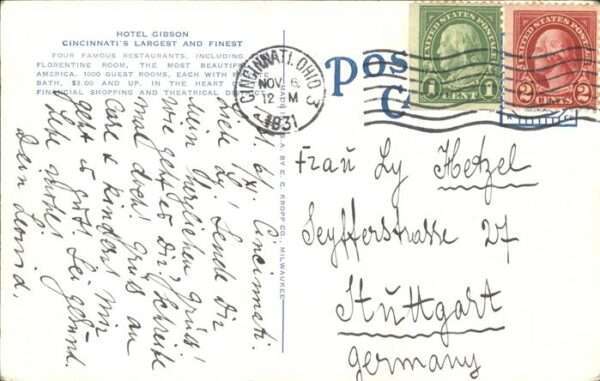 HOTEL GIBSON
CINCINNATI'S LARGEST AND FINEST
FOUR FAMOUS RESTAURANTS, INCLUDING
FLORENTINE ROOM, THE MOST BEAUTIFUL
AMERICA. 1000 GUEST ROOMS, EACH WITH
BATH, $3.00 AND UP. IN THE HEART OF
FINANCIAL SHOPPING AND THEATRICAL DISTRICT
CINCINNATI, OHIO 3
NOV 6
12 M
1931
POS
C
UNITED STATES POSTAGE
1 CENT 1
UNITED STATES POSTAGE
2 CENTS 2
BY E. C. KROPP CO., MILWAUKEE
6/XI. Cincinnati.
Ly! Sende Dir
herzlichen Gruss!
wie geht es Dir? Schreibe
mal doch! Gruss an
Care & Kinder! Mir
geht es gut! Sei gesund.
Dein
Frau Ly Hetzel
Seyfferstrasse 27
Stuttgart
Germany